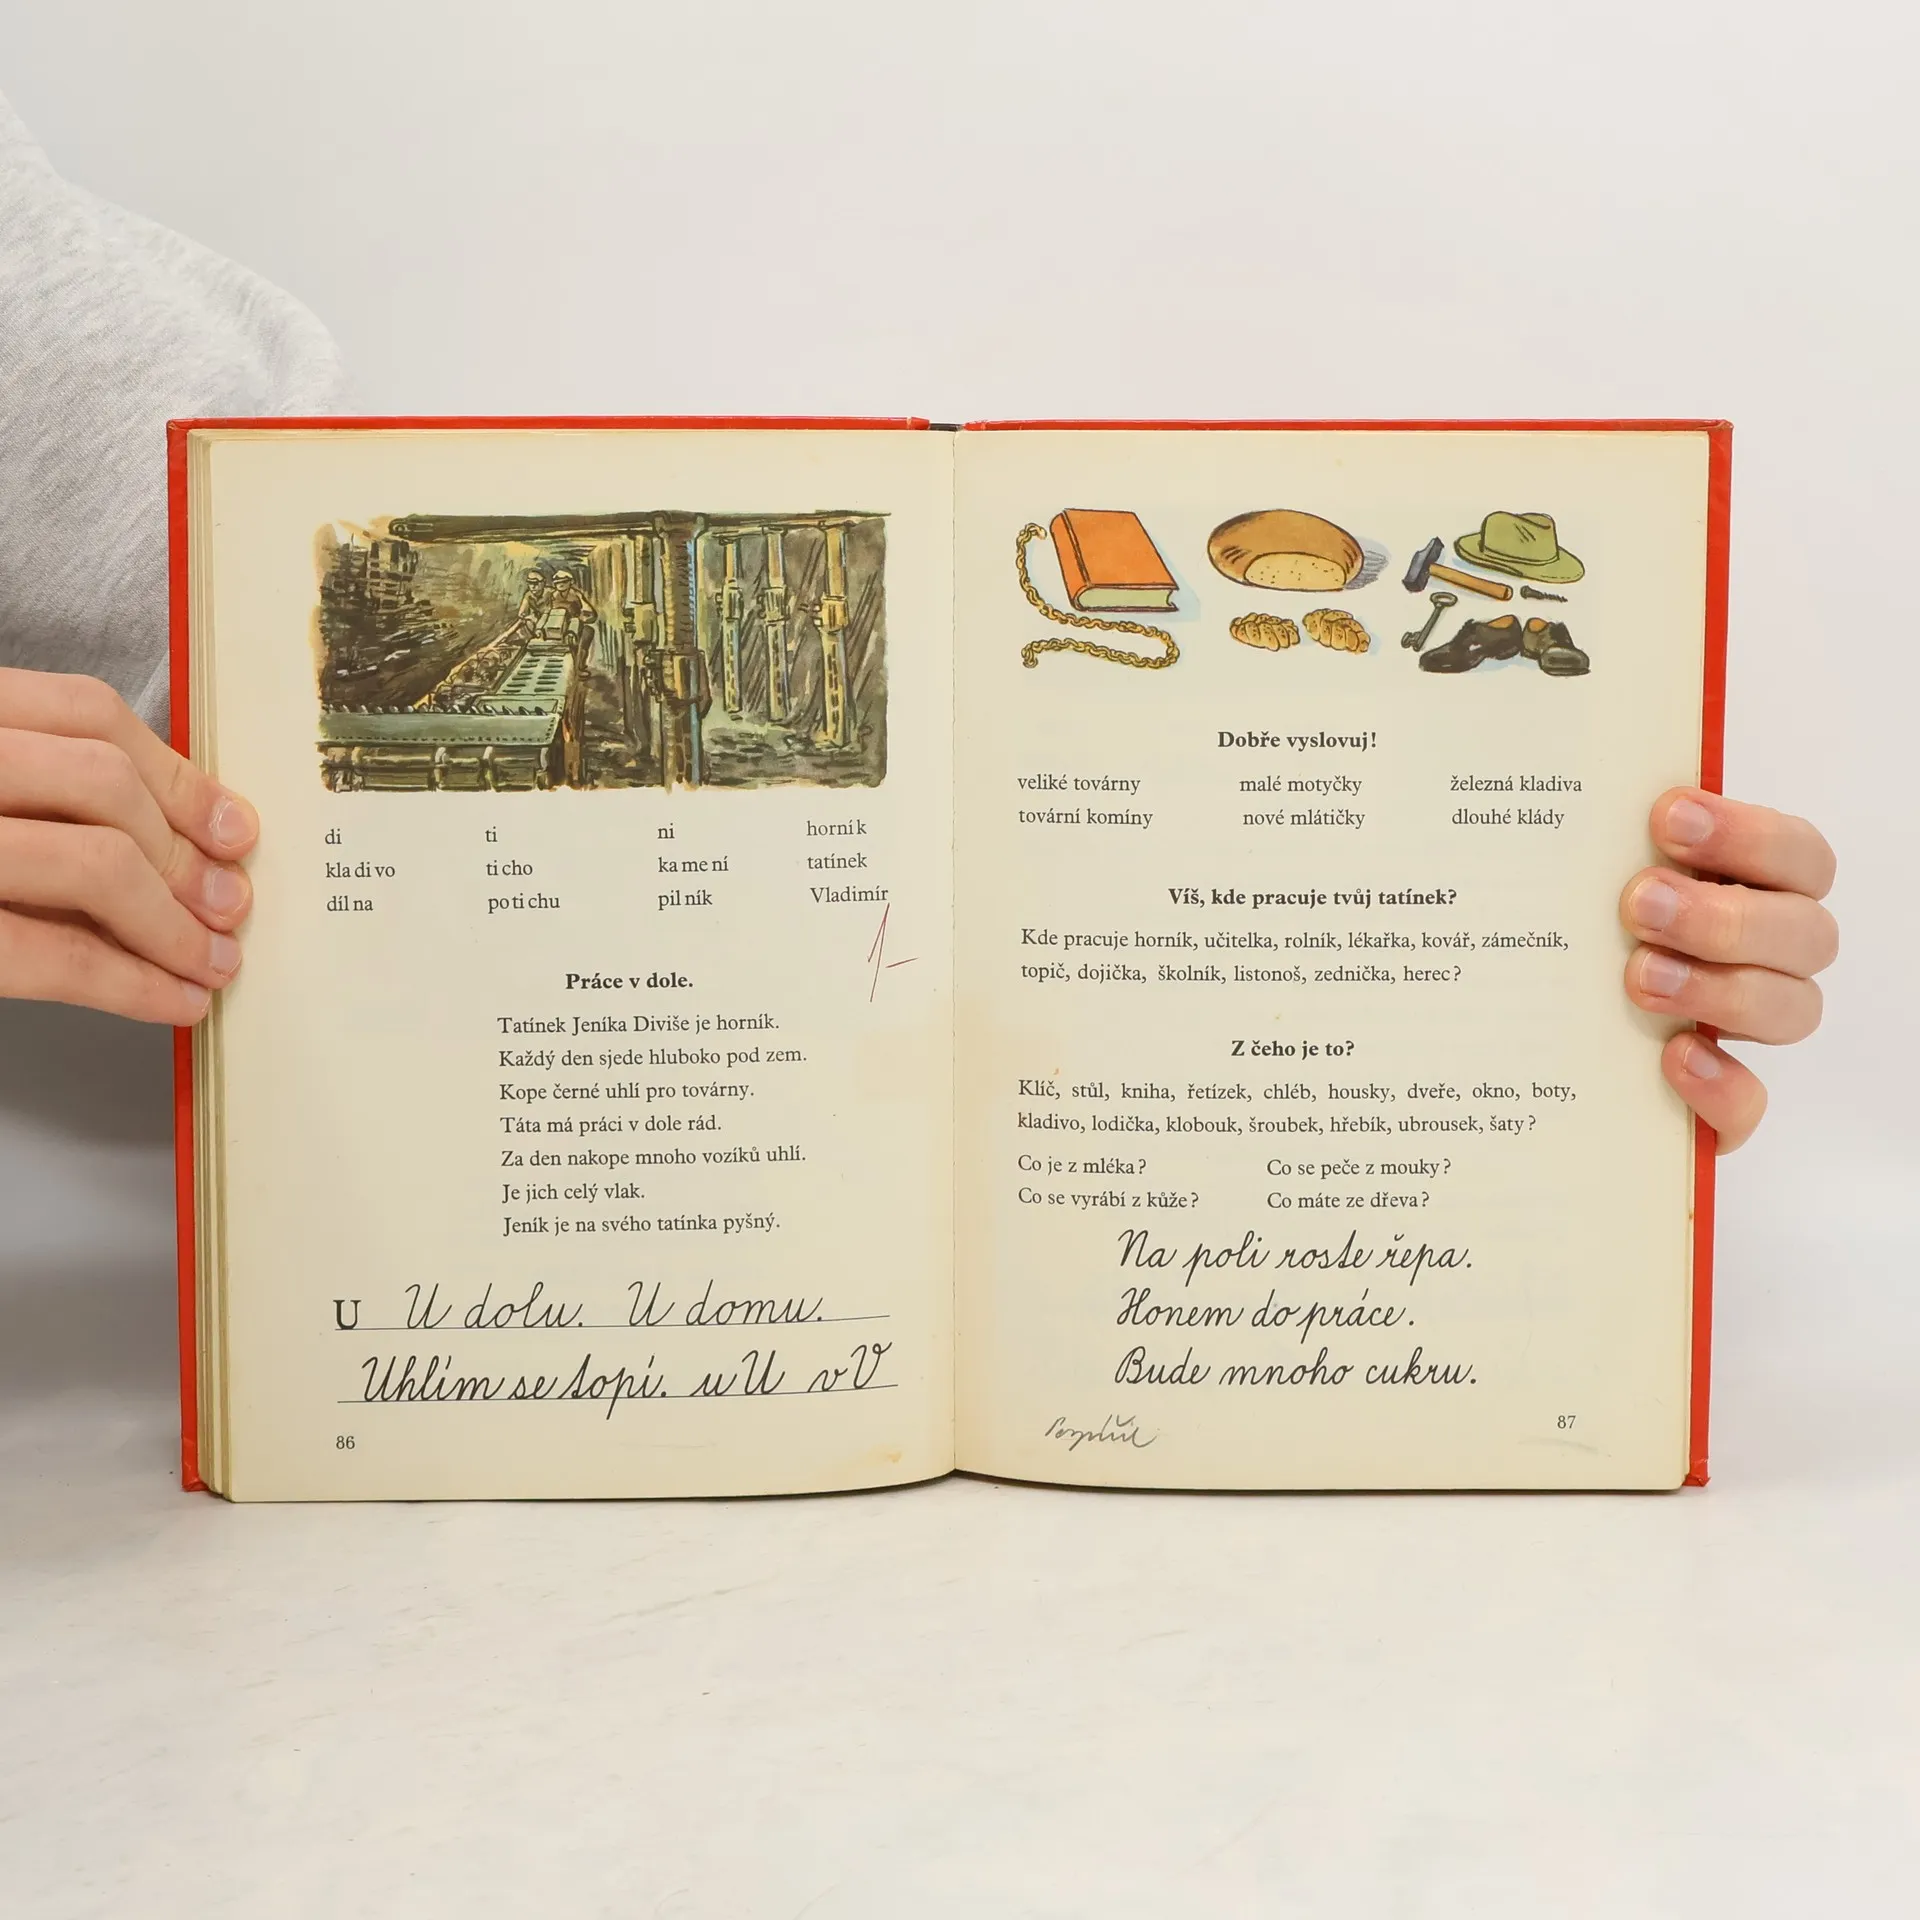 di ti ni horník
kla di vo ti cho ka me ní tatínek
díl na po ti chu pil ník Vladimír
1-
Práce v dole.
Tatínek Jeníka Diviše je horník.
Každý den sjede hluboko pod zem.
Kope černé uhlí pro továrny.
Táta má práci v dole rád.
Za den nakope mnoho vozíků uhlí.
Je jich celý vlak.
Jeník je na svého tatínka pyšný.
U U dolu. U domu.
Uhlím se topí. u U v V
86
Dobře vyslovuj!
veliké továrny malé motyčky železná kladiva
tovární komíny nové mlátičky dlouhé klády
Víš, kde pracuje tvůj tatínek?
Kde pracuje horník, učitelka, rolník, lékařka, kovář, zámečník,
topič, dojička, školník, listonoš, zednička, herec?
Z čeho je to?
Klíč, stůl, kniha, řetízek, chléb, housky, dveře, okno, boty,
kladivo, lodička, klobouk, šroubek, hřebík, ubrousek, šaty?
Co je z mléka? Co se peče z mouky?
Co se vyrábí z kůže? Co máte ze dřeva?
Na poli roste řepa.
Honem do práce.
Bude mnoho cukru.
87